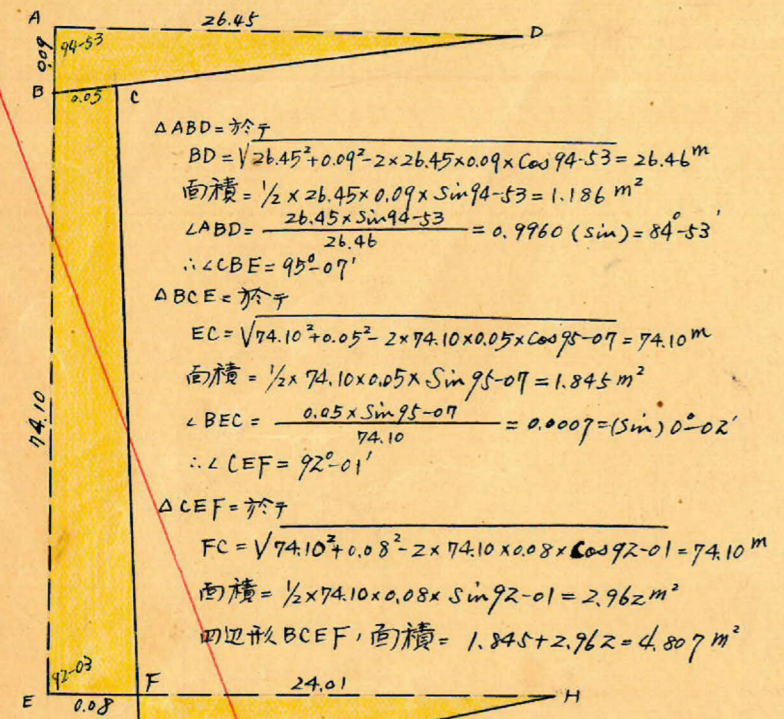 A 26.45 D
94-53
0.09
B 0.05 C
△ABD=於テ
BD=√26.45²+0.09²-2×26.45×0.09×Cos 94-53=26.46ᵐ
面積=½×26.45×0.09×Sin94-53=1.186 m²
∠ABD= 26.45×Sin94-53 / 26.46 =0.9960 (Sin)=84°-53′
∴∠CBE=95°-07′
△BCE=於テ
EC=√74.10²+0.05²-2×74.10×0.05×Cos95-07=74.10ᵐ
面積=½×74.10×0.05×Sin95-07=1.845m²
74.10
∠BEC= 0.05×Sin95-07 / 74.10 =0.0007=(Sin)0°-02′
∴∠CEF=92°-01′
△CEF=於テ
FC=√74.10²+0.08²-2×74.10×0.08×Cos92-01=74.10ᵐ
面積=½×74.10×0.08×Sin92-01=2.962m²
四辺形BCEF,面積=1.845+2.962=4.807m²
92-03
E 0.08 F 24.01 H